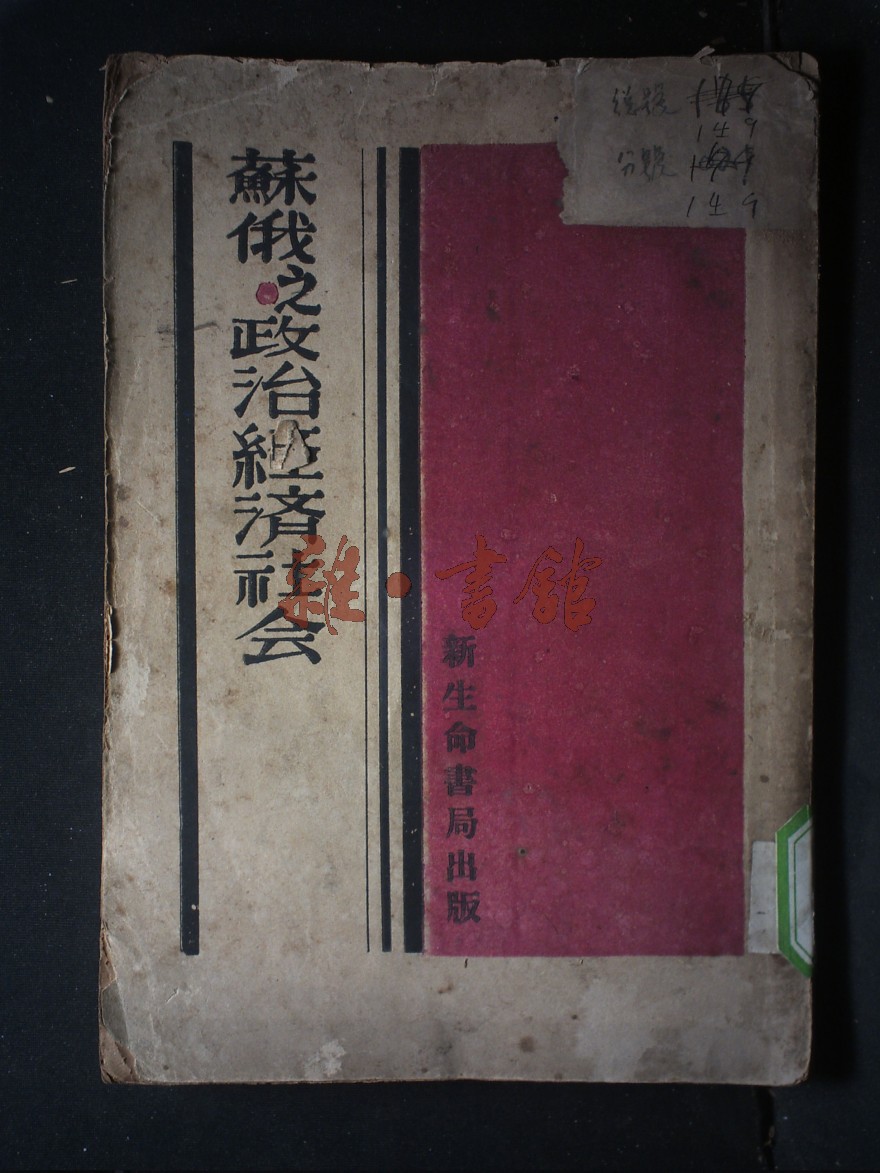 總號
149
分號
149
蘇俄之政治經済社会
新生命書局出版
雜·書館